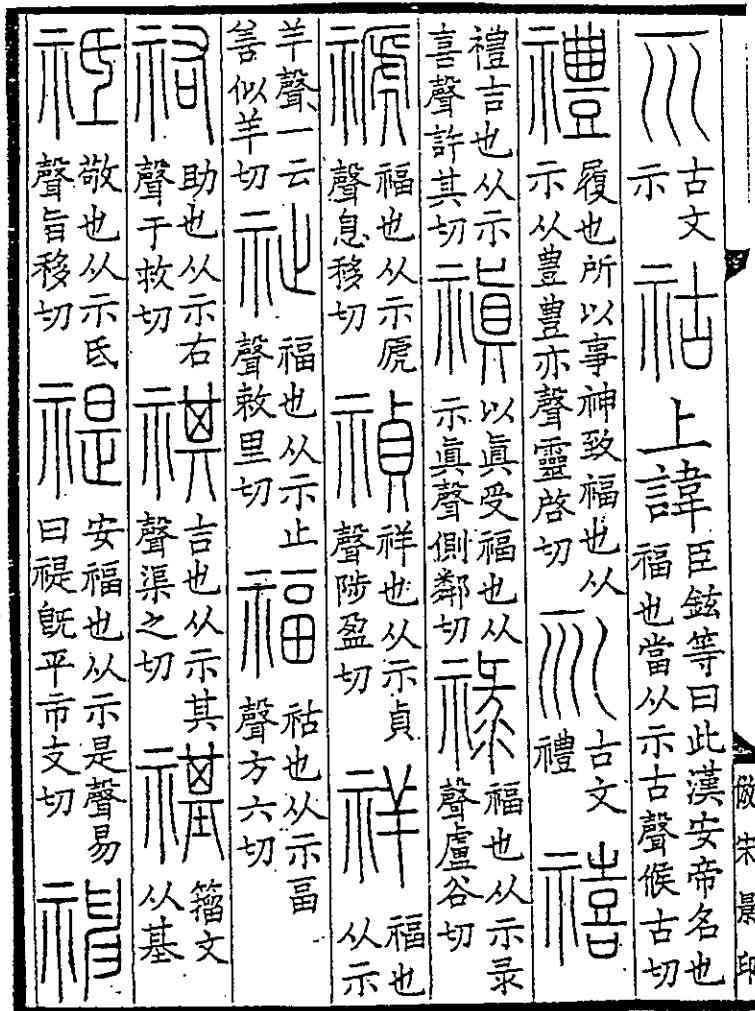 𠕇古文示 祜上諱臣鉉等曰此漢安帝名也福也當从示古聲候古切
禮履也所以事神致福也从示从豊豊亦聲靈啓切 古文禮 禧
禮吉也从示喜聲許其切 禛以眞受福也从示眞聲側鄰切 祿福也从示录聲盧谷切
褫福也从示虒聲息移切 禎祥也从示貞聲陟盈切 祥福也从示
羊聲一云善似羊切 祉福也从示止聲敕里切 福祜也从示畐聲方六切
祐助也从示右聲于救切 祺吉也从示其聲渠之切 禥籒文从基
祗敬也从示氐聲旨移切 禔安福也从示是聲易曰禔旣平市支切 神
倣宋景印